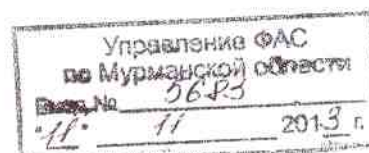 Управление ФАС
по Мурманской области
Вход.№ 5683
"11" 11 2013 г.